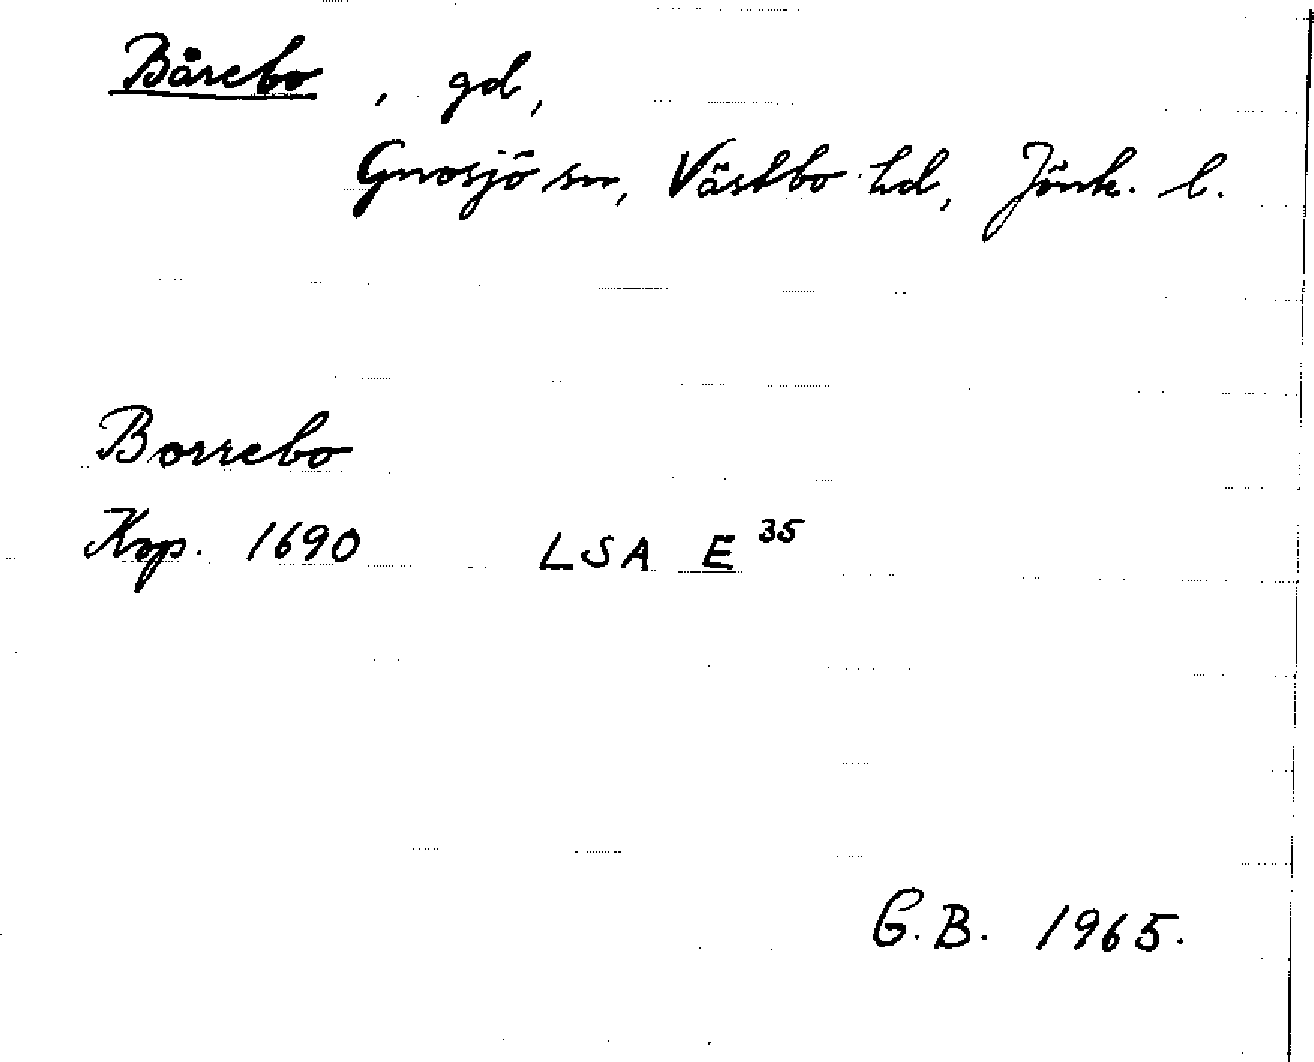 Bårebo, gd,
Gnosjö sn, Västbo hd, Jönk. l.
Borrebo
Kop. 1690 LSA E 35
G.B. 1965.